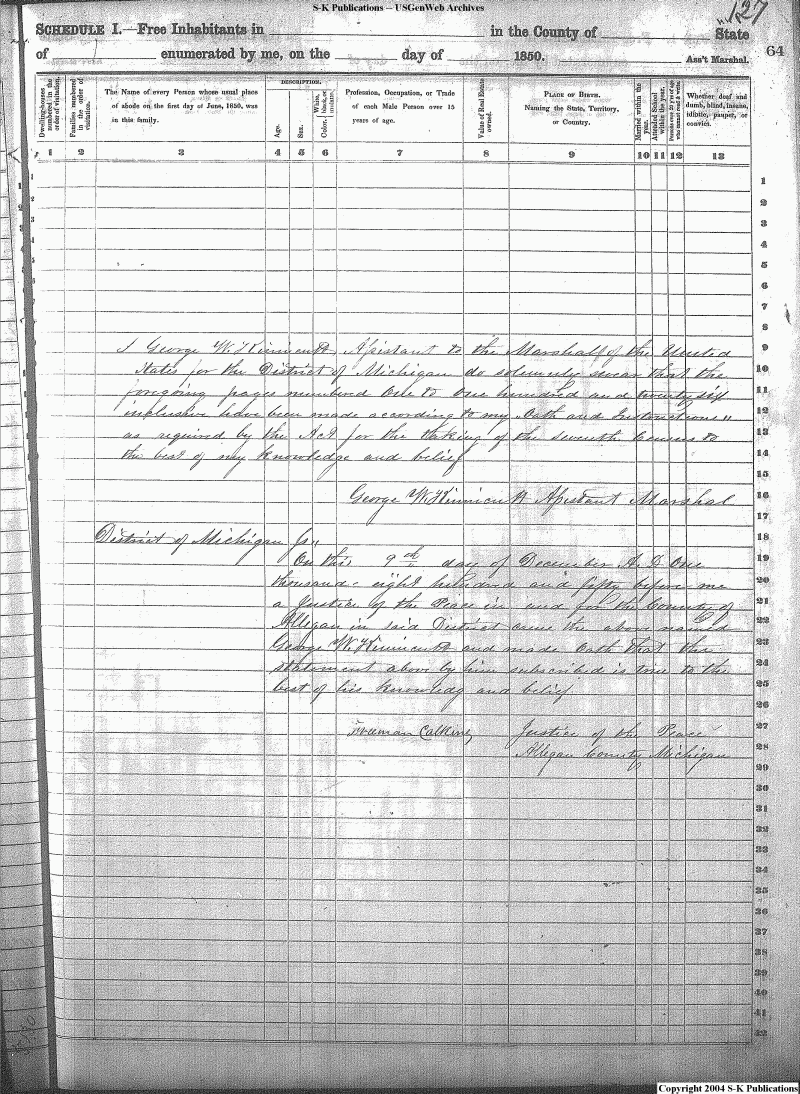 S-K Publications -- USGenWeb Archives
127
SCHEDULE I.—Free Inhabitants in in the County of State
of enumerated by me, on the day of 1850. Ass't Marshal.
64
Dwelling-houses numbered in the order of visitation.
Families numbered in the order of visitation.
The Name of every Person whose usual place of abode on the first day of June, 1850, was in this family.
DESCRIPTION.
Age.
Sex.
Color, White, black, or mulatto.
Profession, Occupation, or Trade of each Male Person over 15 years of age.
Value of Real Estate owned.
PLACE OF BIRTH. Naming the State, Territory, or Country.
Married within the year.
Attended School within the year.
Persons over 20 y'rs of age who cannot read & write.
Whether deaf and dumb, blind, insane, idiotic, pauper, or convict.
1 2 3 4 5 6 7 8 9 10 11 12 13
1
2
3
4
5
6
7
8
9
I George W. Kinnicutt Assistant to the Marshall of the United
10
States for the District of Michigan do solemnly swear that the
11
foregoing pages numbered One to One hundred and twenty six
12
inclusive have been made according to my Oath and Instructions "
13
as required by the Act for the taking of the seventh Census to
14
the best of my knowledge and belief
15
16
George W. Kinnicutt Assistant Marshal
17
18
District of Michigan ss "
19
On this 9th day of December A. D. One
20
thousand eight hundred and fifty before me
21
a Justice of the Peace in and for the County of
22
Allegan in said District came the above named
23
George W. Kinnicutt and made Oath that the
24
statement above by him subscribed is true to the
25
best of his knowledg and belief.
26
27
Freeman Calkins, Justice of the Peace
28
Allegan County Michigan
29
30
31
32
33
34
35
36
37
38
39
40
41
42
Copyright 2004 S-K Publications